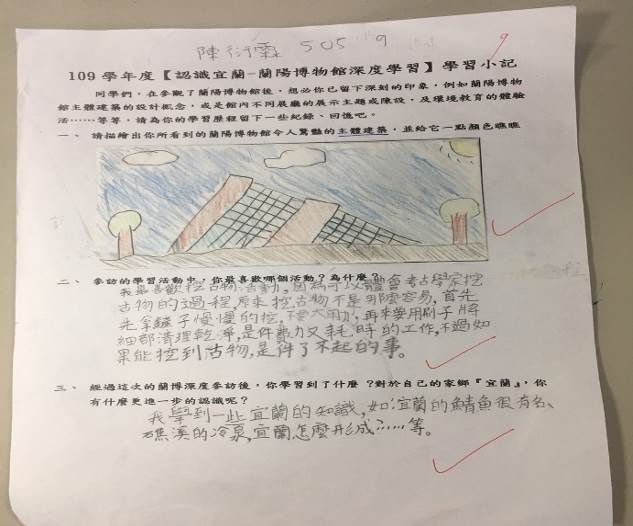 陳衍霖 505 9
9
109 學年度【認識宜蘭-蘭陽博物館深度學習】學習小記
同學們，在參觀了蘭陽博物館後，想必你已留下深刻的印象，例如蘭陽博物
館主體建築的設計概念，或是館內不同展廳的展示主題或陳設，及環境教育的體驗
活……等等，請為你的學習歷程留下一些紀錄、回憶吧。
一、 請描繪出你所看到的蘭陽博物館令人驚豔的主體建築，並給它一點顏色瞧瞧
二、 參訪的學習活動中，你最喜歡哪個活動？為什麼？
我最喜歡挖古物活動，因為可以體會考古學家挖
古物的過程原來挖古物不是那麼容易，首先
先拿鏟子慢慢的挖，不要太用力，再來要用刷子將
細部清理乾淨，是件費力又耗時的工作，不過如
果能挖到古物，是件了不起的事。
三、 經過這次的蘭博深度參訪後，你學習到了什麼？對於自己的家鄉『宜蘭』，你
有什麼更進一步的認識呢？
我學到一些宜蘭的知識，如：宜蘭的鯖魚很有名、
礁溪的冷泉，宜蘭怎麼形成……等。